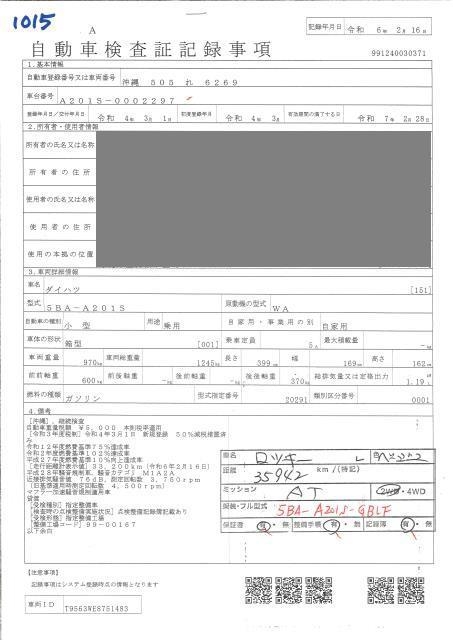 1015
A
記録年月日 令和 6年 2月16日
自動車検査証記録事項
991240030371
1.基本情報
自動車登録番号又は車両番号 沖縄 505 れ 6269
車台番号 A201S-0002297
登録年月日/交付年月日 令和 4年 3月 1日 初度登録年月 令和 4年 3月 有効期間の満了する日 令和 7年 2月28日
2.所有者・使用者情報
所有者の氏名又は名称
所有者の住所
使用者の氏名又は名称
使用者の住所
使用の本拠の位置
3.車両詳細情報
車名 ダイハツ [151]
型式 5BA-A201S 原動機の型式 WA
自動車の種別 小型 用途 乗用 自家用・事業用の別 自家用
車体の形状 箱型 [001] 乗車定員 5人 最大積載量 -kg
車両重量 970kg 車両総重量 1245kg 長さ 399cm 幅 169cm 高さ 162cm
前前軸重 600kg 前後軸重 -kg 後前軸重 -kg 後後軸重 370kg 総排気量又は定格出力 1.19L
燃料の種類 ガソリン 型式指定番号 20291 類別区分番号 0001
4.備考
[沖縄],継続検査
自動車重量税額 ¥5,000 本則税率適用
[令和3年度税制]令和4年3月1日 新規登録 50%減税措置済
み
令和12年度燃費基準75%達成車
令和2年度燃費基準102%達成車
平成27年度燃費基準10%向上達成車
[走行距離計表示値]33,200km(令和6年2月16日)
平成28年騒音規制車、騒音カテゴリ M1A2A
近接排気騒音値 76dB,測定回転数 3,760rpm
(旧基準適用時測定回転数 4,500rpm)
マフラー加速騒音規制適用車
[受検種別]指定整備車
[検査時の点検整備実施状況]点検整備記録簿記載あり
[受検形態]指定整備工場
[整備工場コード]99-00167
以下余白
車名 ロッキー L
距離 35942 km/(特記)
ミッション AT 2WD・4WD
側装・フル型式 5BA-A201S-GBLF
保証書 有・無 整備手帳 有・無 記録簿 有・無
【注意事項】
記録事項はシステム登録時点の情報となります
車両ID T9563WE8751483